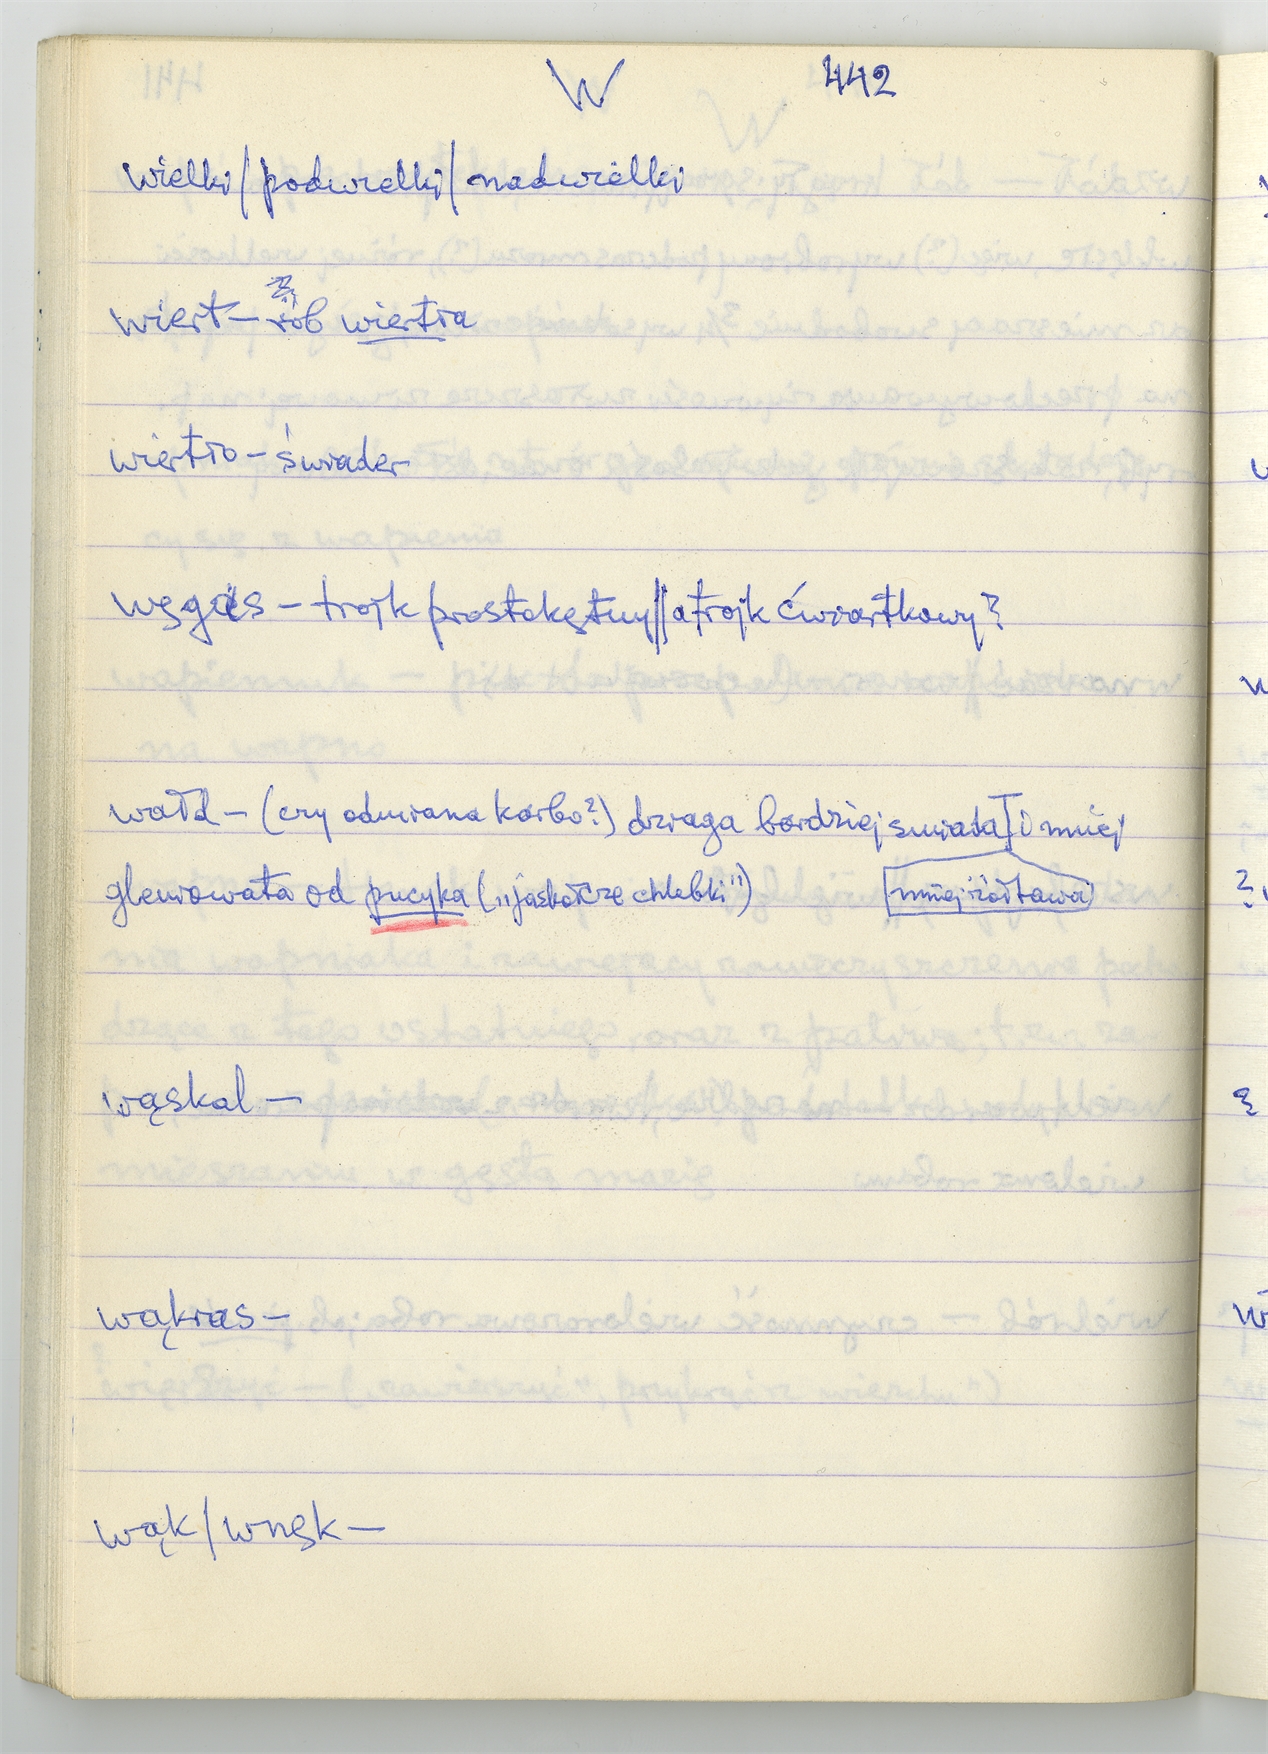 W 442
wielki/podwielki/nadwielki
wiert – rób wiertra
wiertło – świder
węgas – trojk prostokętny // a trojk ćwiartkowy?
wałd – (czy odmiana karbo?) bardziej i mniej
glewowata od pucyka („jaskółcze chlebki") mniej żółtawa
wąskal –
wąkras –
wąk/wnęk –